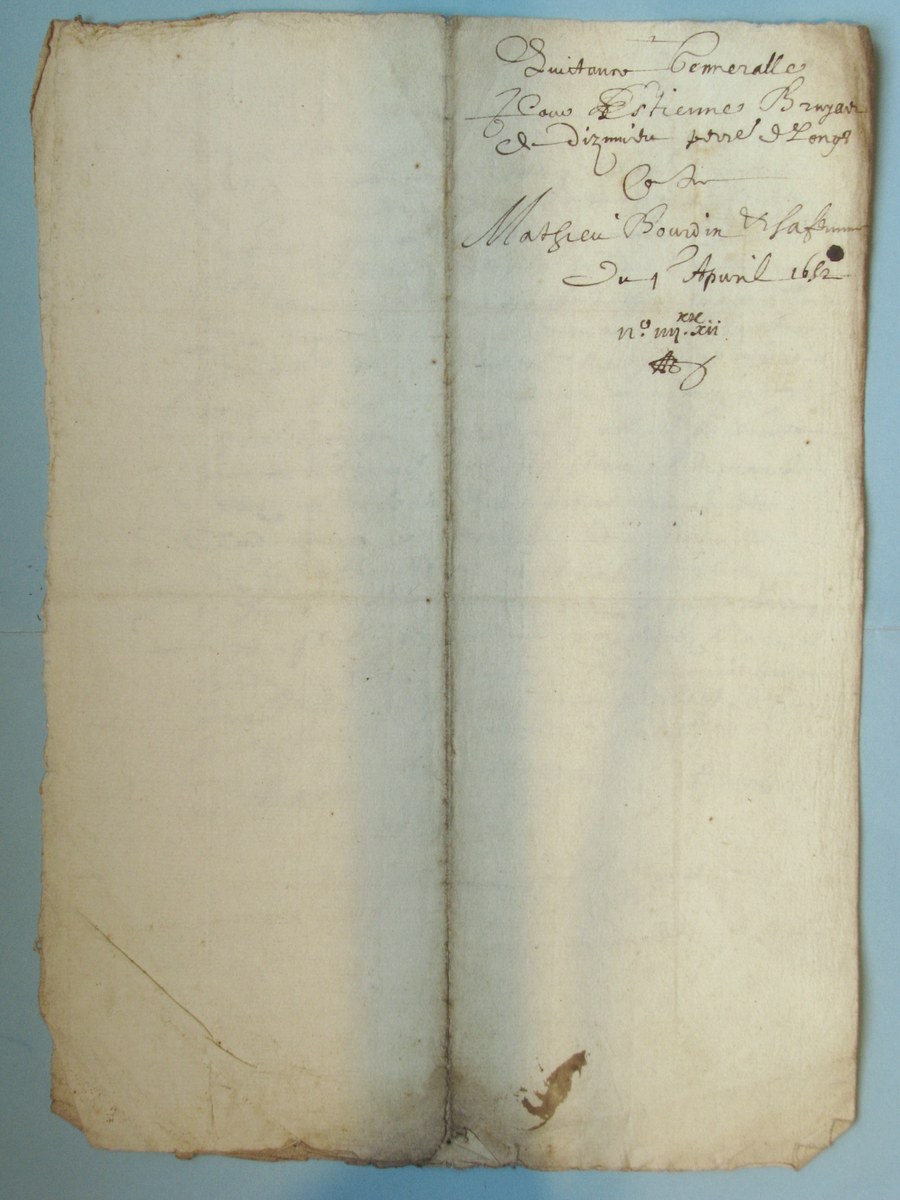 Quictance Genneralle
Pour Estienne Bruyas
de Dizimieu pere de Longe
Contre
Mathieu Bourdin & sa femme
Du 1 Apvril 1652
n.º iiij.xx xii